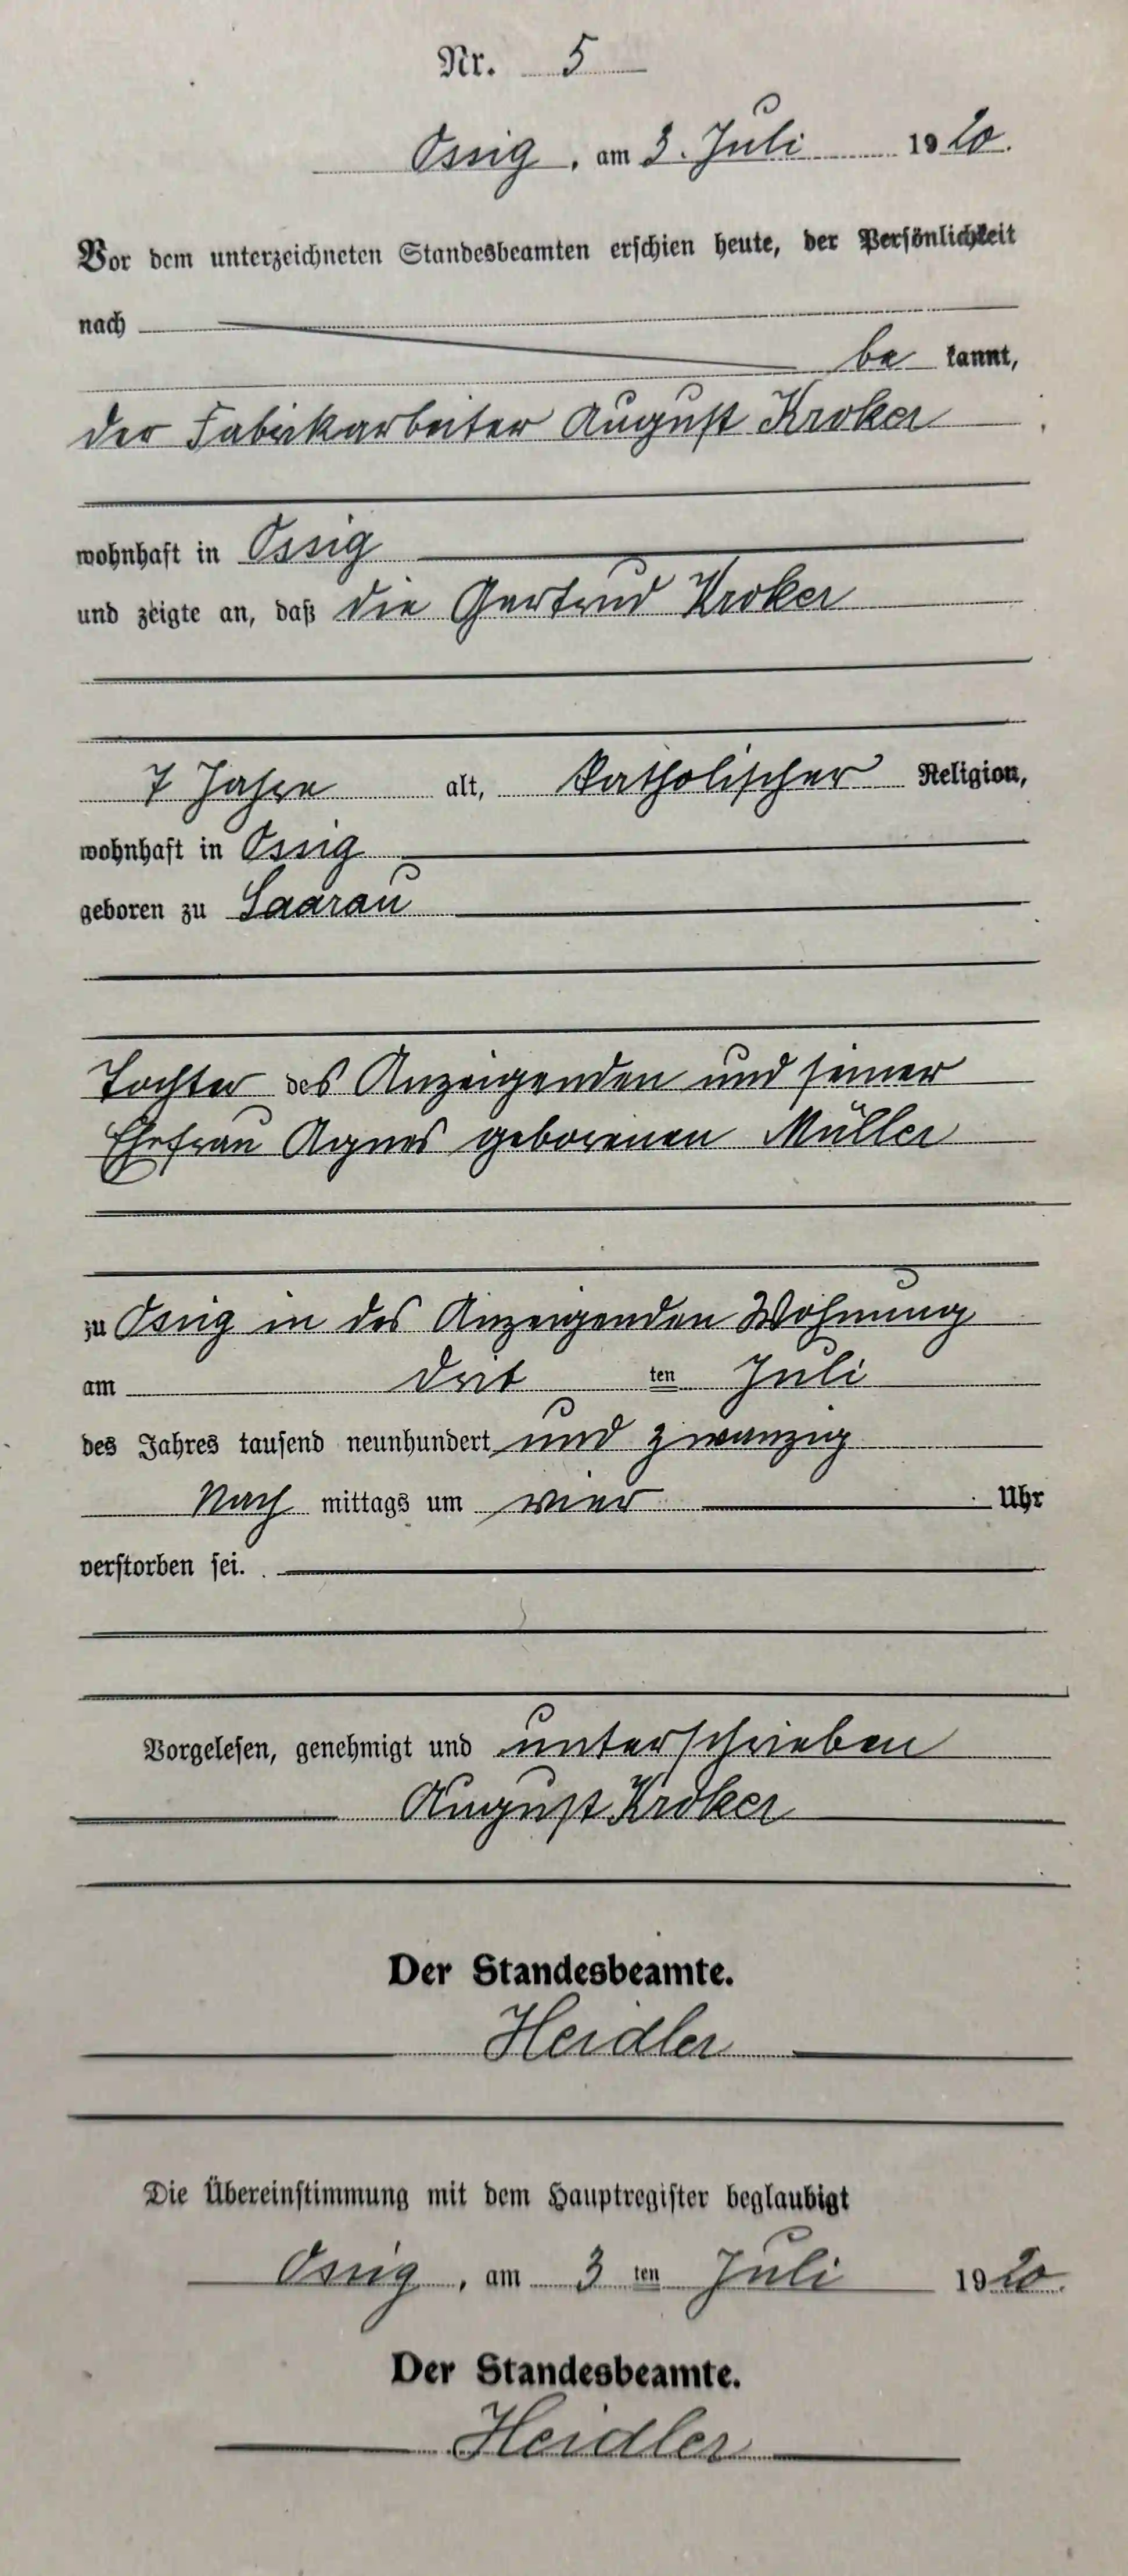 Nr. 5
Ossig, am 3. Juli 1920.
Vor dem unterzeichneten Standesbeamten erschien heute, der Persönlichkeit
nach
be kannt,
der Fabrikarbeiter August Kroker
wohnhaft in Ossig
und zeigte an, daß die Gertrud Kroker
7 Jahre alt, katholischer Religion,
wohnhaft in Ossig
geboren zu Saarau
Tochter des Anzeigenden und seiner
Ehefrau Agnes geborenen Müller
zu Ossig in des Anzeigenden Wohnung
am drit ten Juli
des Jahres tausend neunhundert und zwanzig
Nach mittags um vier Uhr
verstorben sei.
Vorgelesen, genehmigt und unterschrieben
August Kroker
Der Standesbeamte.
Heidler
Die Übereinstimmung mit dem Hauptregister beglaubigt
Ossig, am 3 ten Juli 1920.
Der Standesbeamte.
Heidler